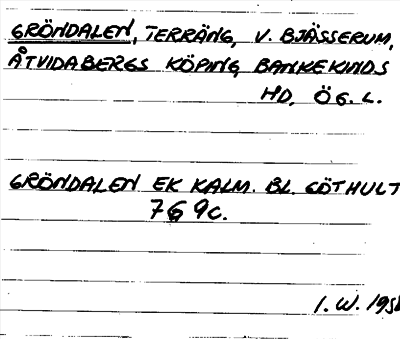 GRÖNDALEN, TERRÄNG, V. BJÄSSERUM,
ÅTVIDABERGS KÖPING, BANKEKINDS
HD, ÖG. L.
GRÖNDALEN EK KALM. BL. GÖTHULT
7G 9c.
I. W.